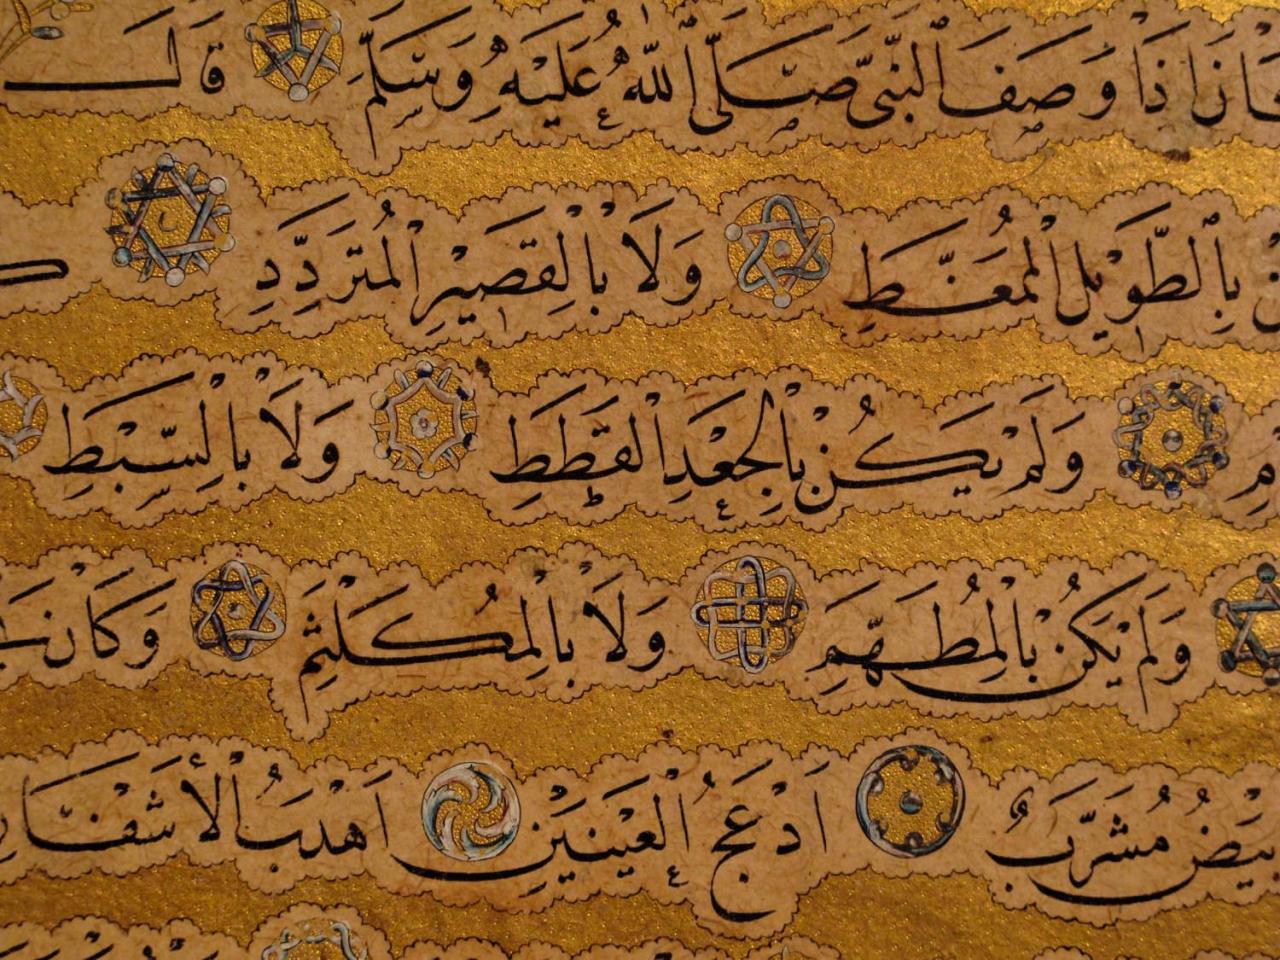 كَانَ اِذَا وَصَفَ النَّبِيَّ صَلَّى اللّٰهُ عَلَيْهِ وَسَلَّمَ قَالَ
بِالطَّوِيْلِ الْمُمَغَّطِ وَلَا بِالْقَصِيْرِ الْمُتَرَدِّدِ
وَلَمْ يَكُنْ بِالْجَعْدِ الْقَطَطِ وَلَا بِالسَّبْطِ
وَلَمْ يَكُنْ بِالْمُطَهَّمِ وَلَا بِالْمُكَلْثَمِ وَكَانَ
اَبْيَضُ مُشْرَبٌ اَدْعَجُ الْعَيْنَيْنِ اَهْدَبُ الْأَشْفَارِ